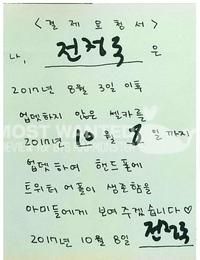 <결제요청서>
나, 전정국 은
2017년 8월 3일 이후
업뎃하지 않은 셀카를
2017년 10월 8일까지
업뎃하여 핸드폰에
트위터 어플이 생존함을
아미들에게 보여주겠습니다♡
2017년 10월 8일 전정국
MOST WANTED